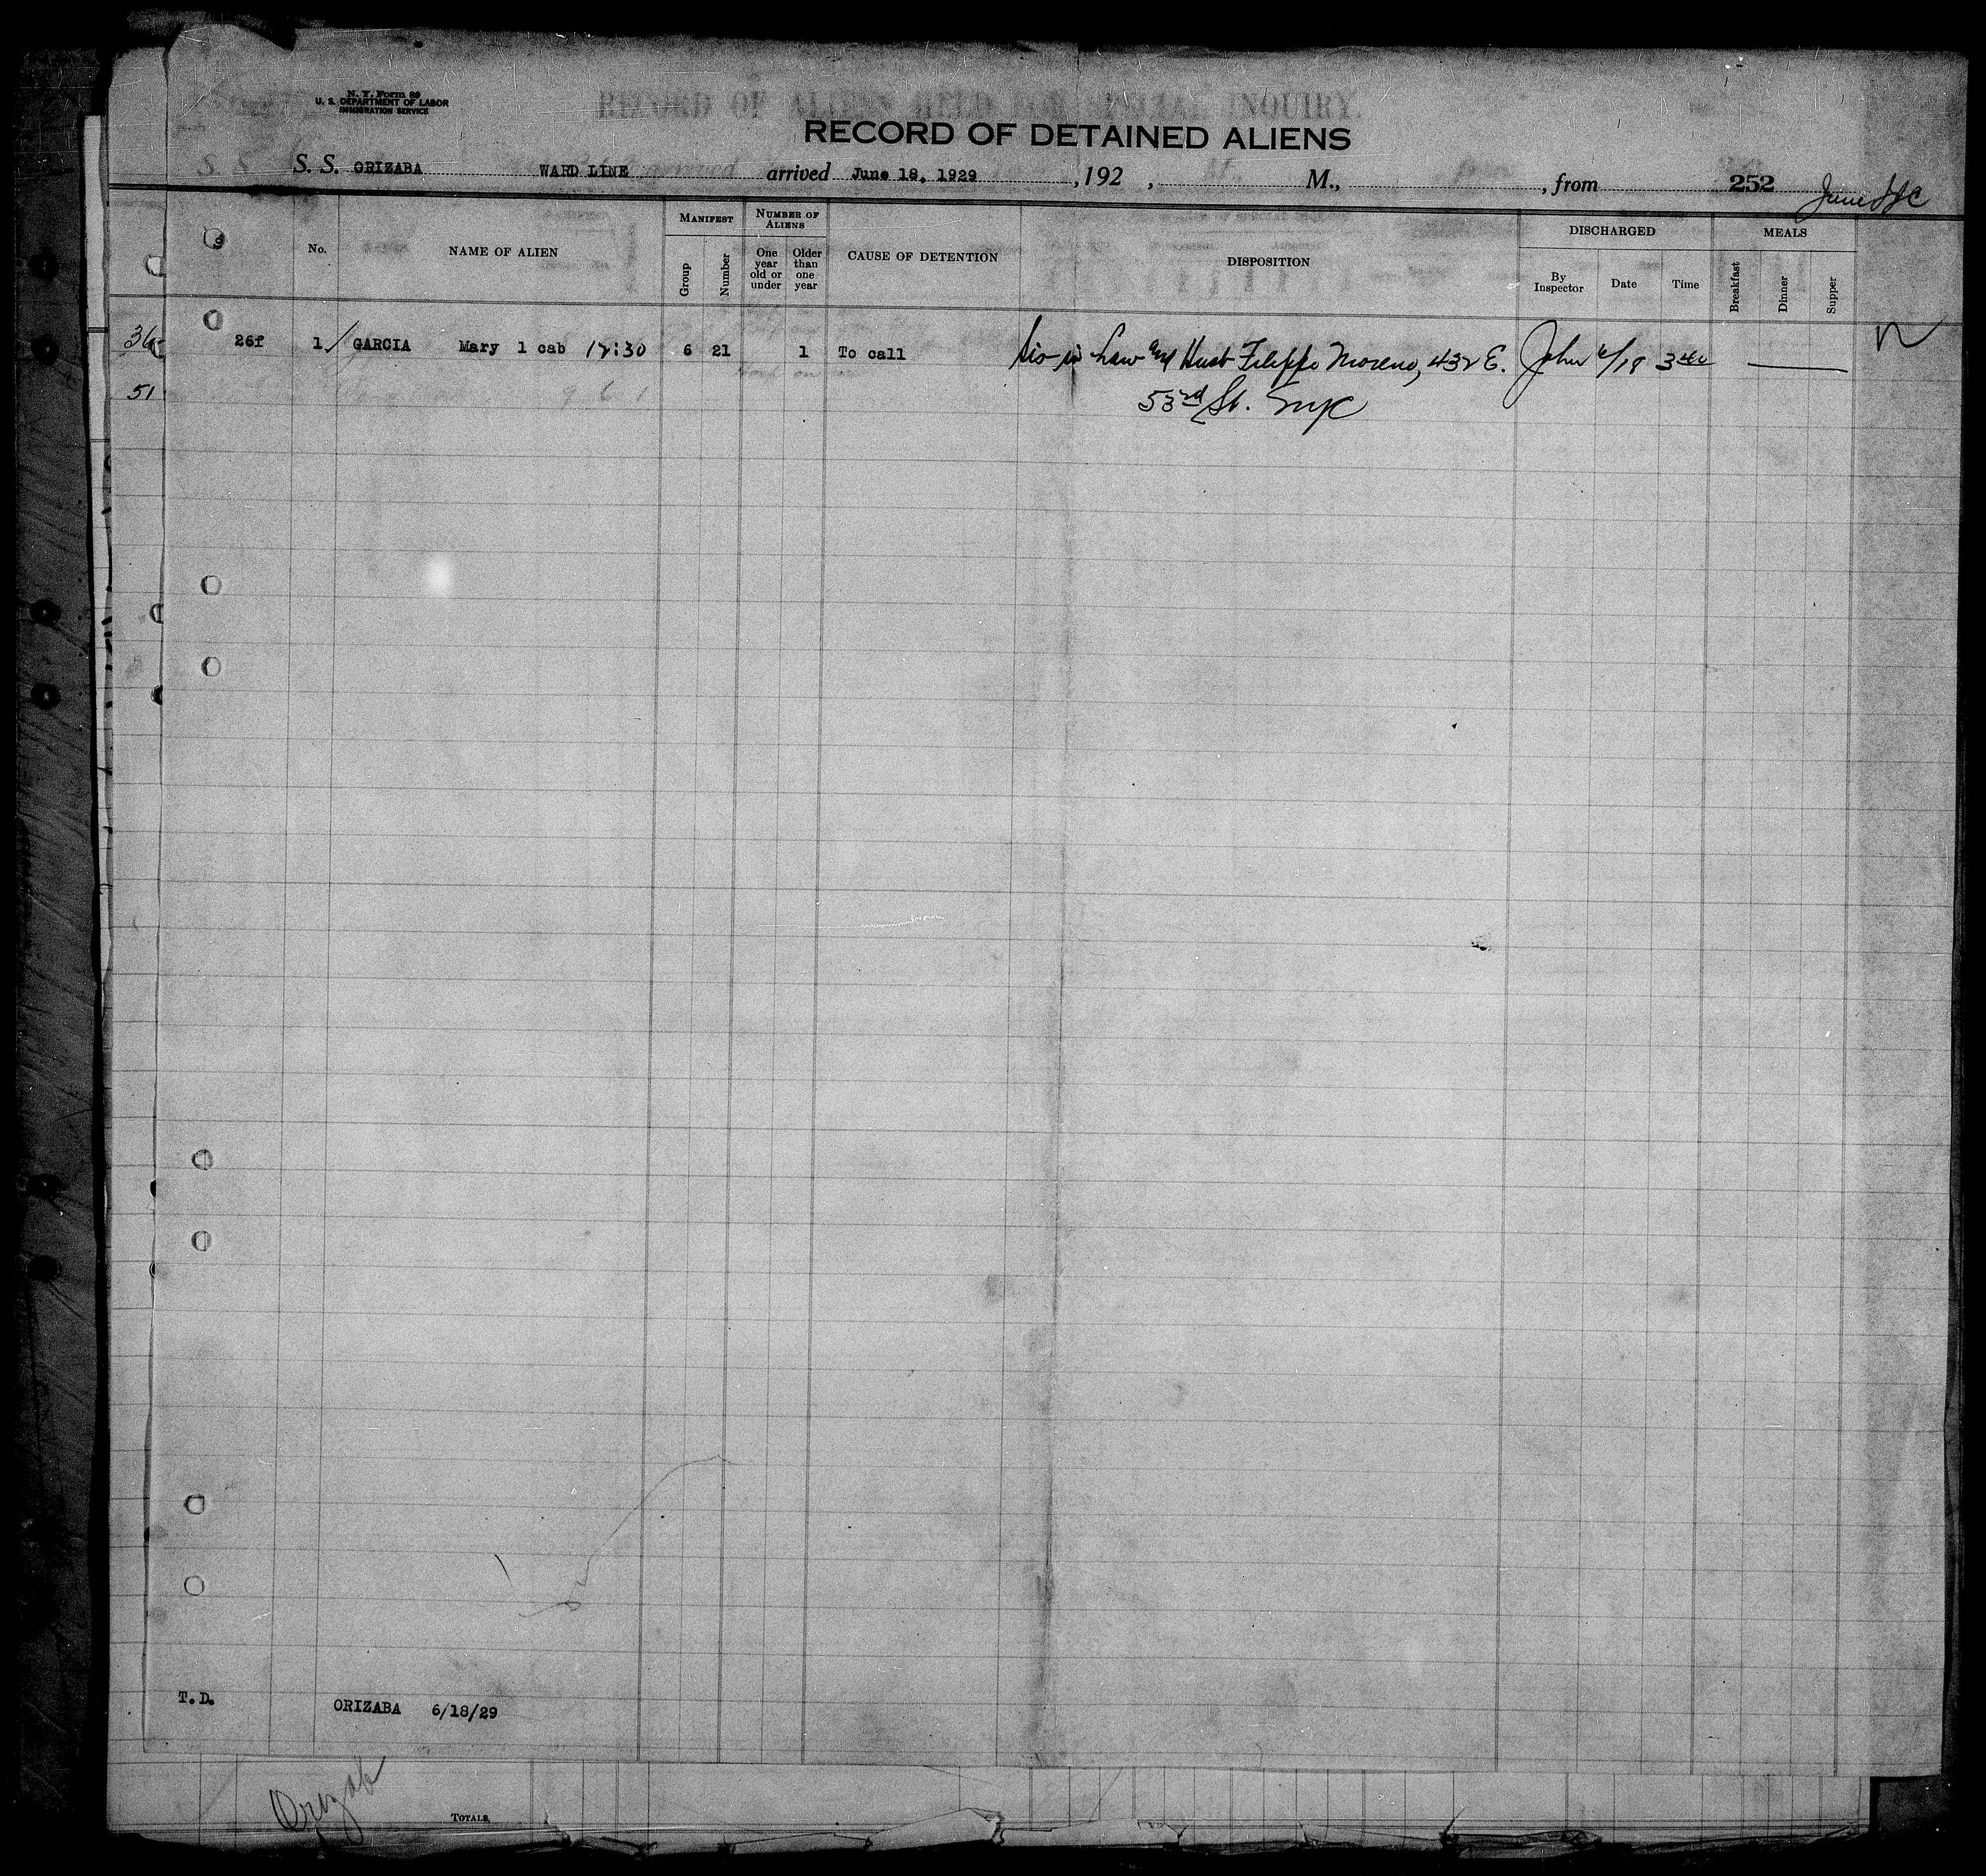 N. Y. Form 89
U. S. DEPARTMENT OF LABOR
IMMIGRATION SERVICE
RECORD OF ALIENS HELD FOR SPECIAL INQUIRY.
RECORD OF DETAINED ALIENS
S. S. ORIZABA WARD LINE arrived June 18, 1929, 192 , M., , from 252
No. NAME OF ALIEN MANIFEST NUMBER OF ALIENS CAUSE OF DETENTION DISPOSITION DISCHARGED MEALS
Group Number One year old or under Older than one year By Inspector Date Time Breakfast Dinner Supper
36
26f 1 GARCIA Mary 1 cab 12:30 6 21 1 To call Sis in Law and Husb Filippo Moreno, 432 E. John 6/18 3 40
51 53rd St. NYC
T.D. ORIZABA 6/18/29
Orizab
TOTALS